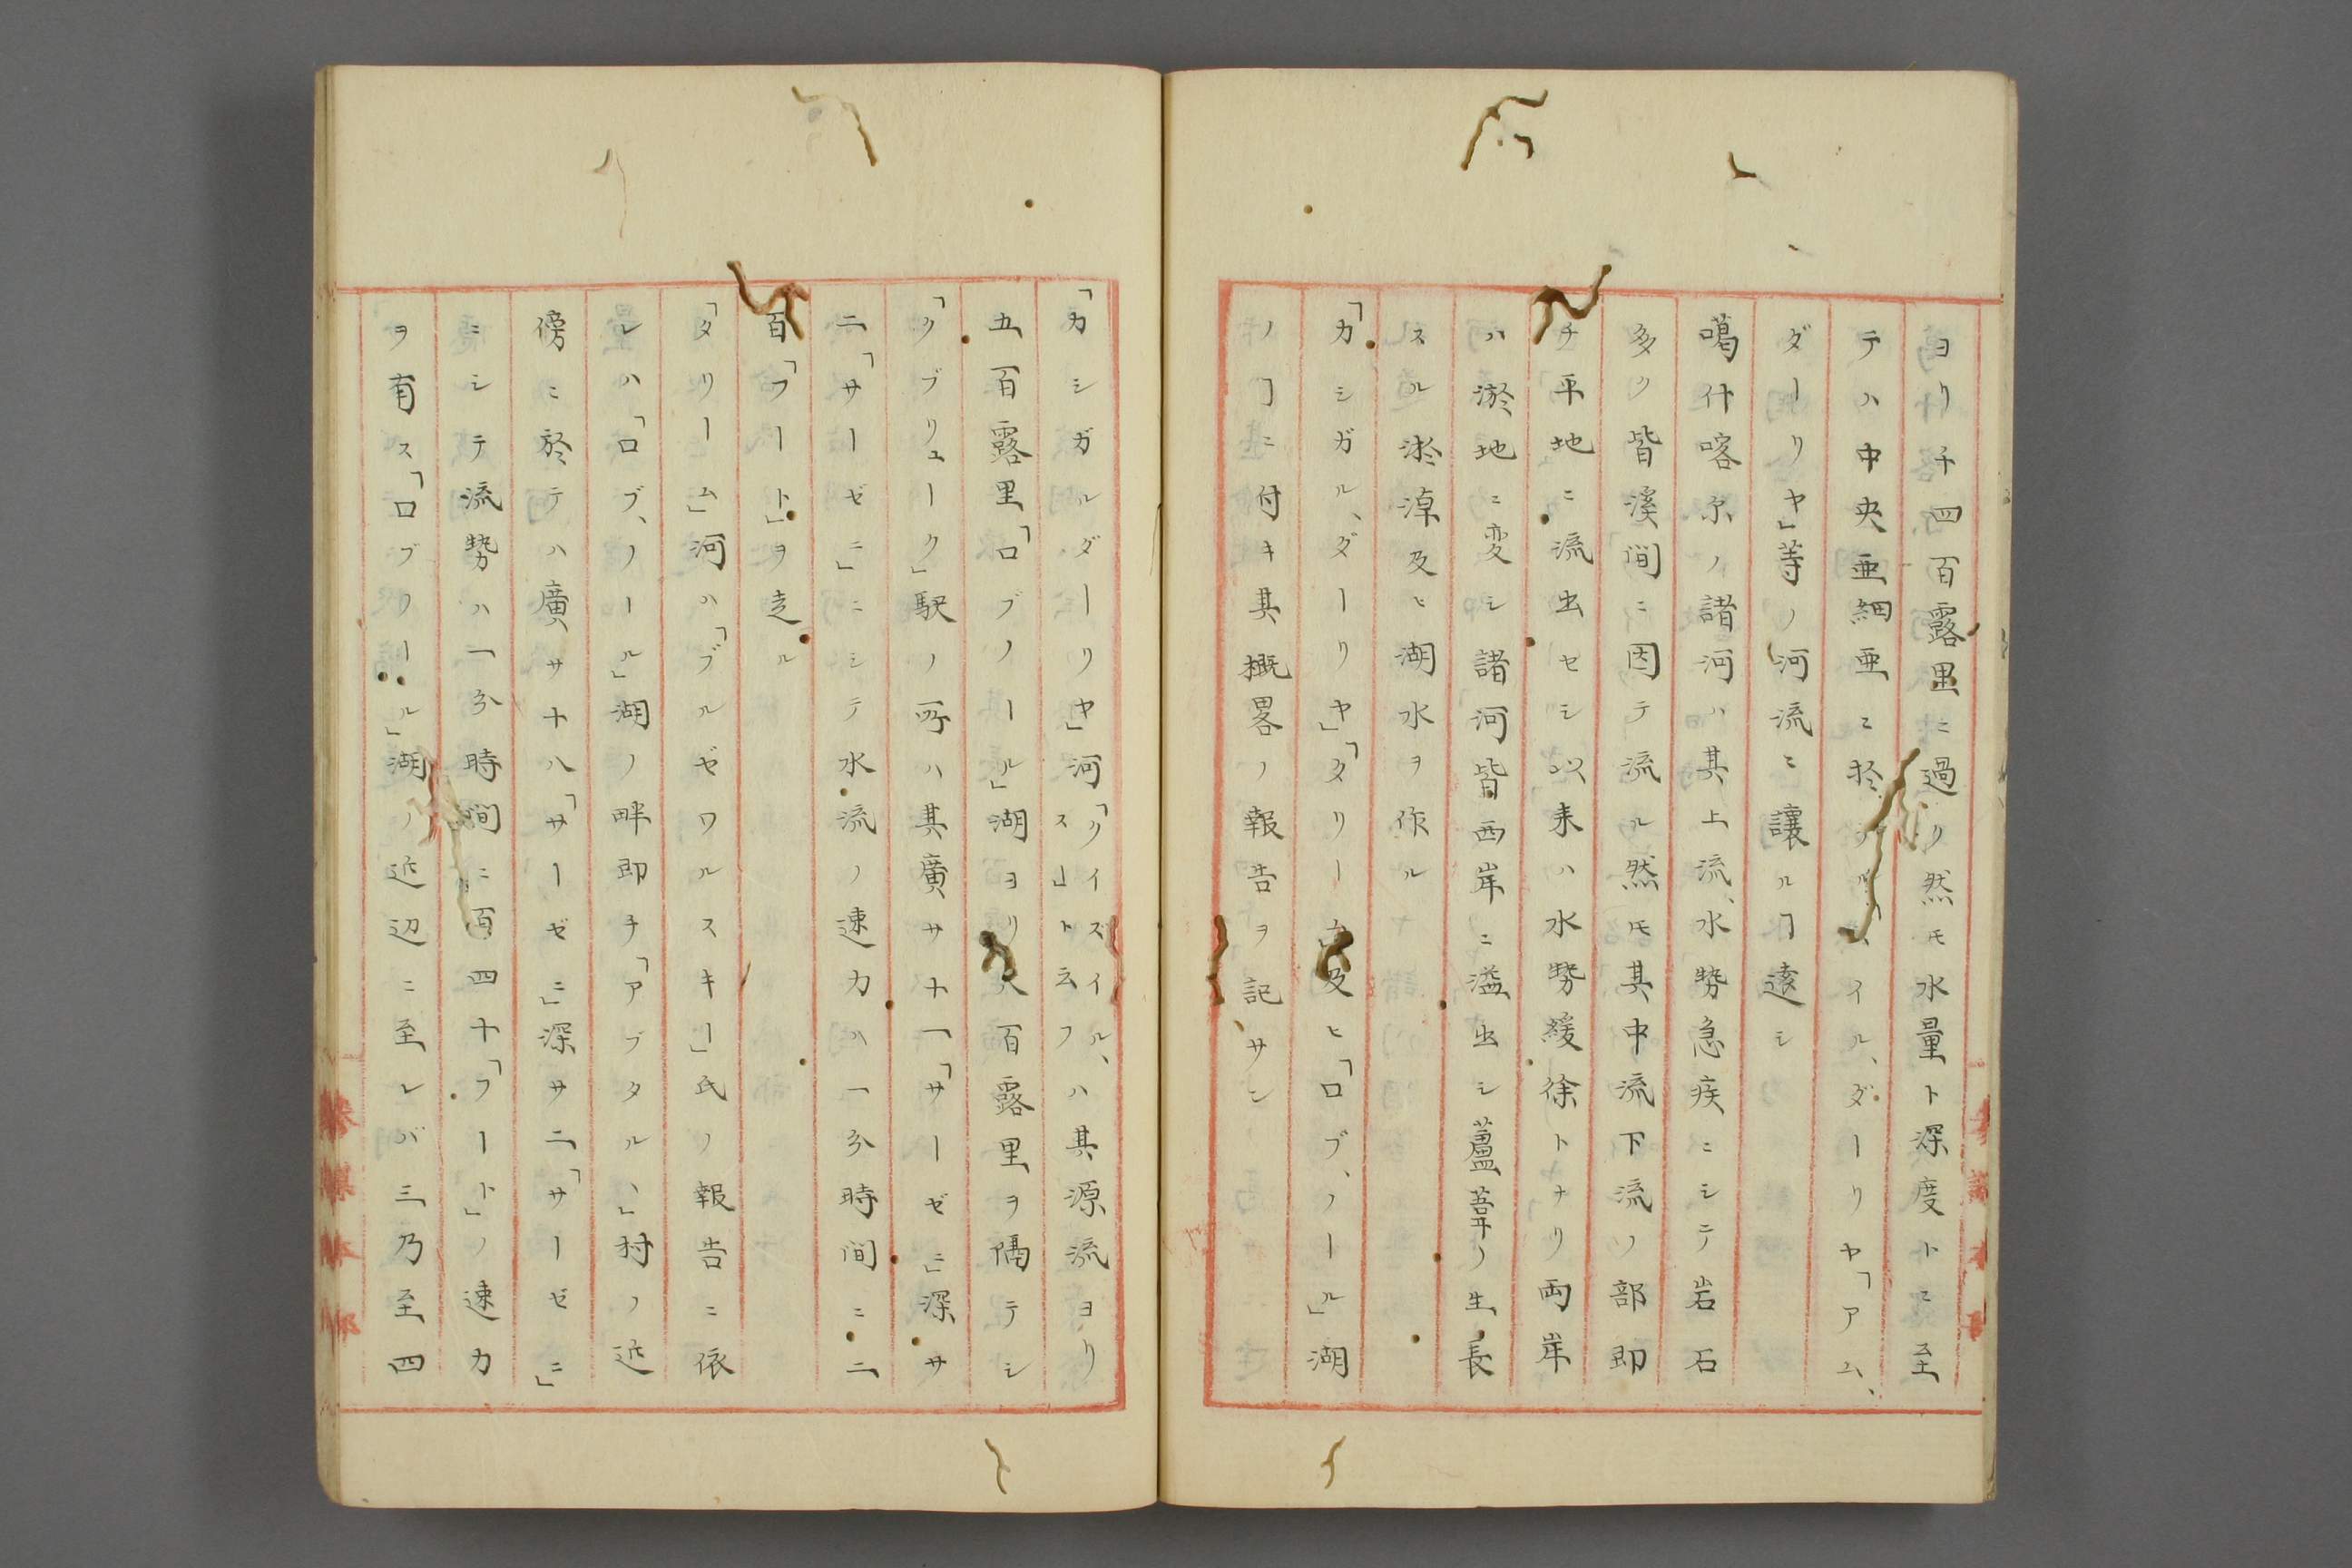 ヨリ千四百露里ニ過リ然モ水量ト深度トニ至
テハ中央亜細亜ニ於ケルイル、ダーリヤ「アム、
ダーリヤ」等ノ河流ニ讓ルヿ遠シ
噶什喀尓ノ諸河ハ其上流、水勢急疾ニシテ岩石
多ク皆溪間ニ因テ流ル然モ其中流下流ノ部即
チ平地ニ流出セシ以来ハ水勢緩徐トナリ両岸
ハ淤地ニ変シ諸河皆西岸ニ溢出シ蘆葦ノ生長
スル淤淖及ヒ湖水ヲ作ル
「カシガル、ダーリヤ」「タリーム及ヒ「ロブ、ノール」湖
ノヿニ付キ其概畧ノ報告ヲ記サン
「カシガルダーリヤ」河「クイズイル、ス」ト云フハ其源流ヨリ
五百露里「ロブノール」湖ヨリ八百露里ヲ隔テシ
「クブリューク」駅ノ所ハ其廣サ十一「サーゼニ」深サ
二「サーゼニ」ニシテ水流ノ速力ハ一分時间ニ二
百「フート」ヲ走ル
「タリーム」河ハ「ブルゼワルスキー」氏ノ報告ニ依
レハ「ロブ、ノール」湖ノ畔即チ「アブタル、」村ノ近
傍ニ於テハ廣サ十八「サーゼニ」深サ二「サーゼニ」
ニシテ流勢ハ一分時间ニ百四十「フート」ノ速力
ヲ有ス「ロブノール」湖ノ近辺ニ至レバ三乃至四